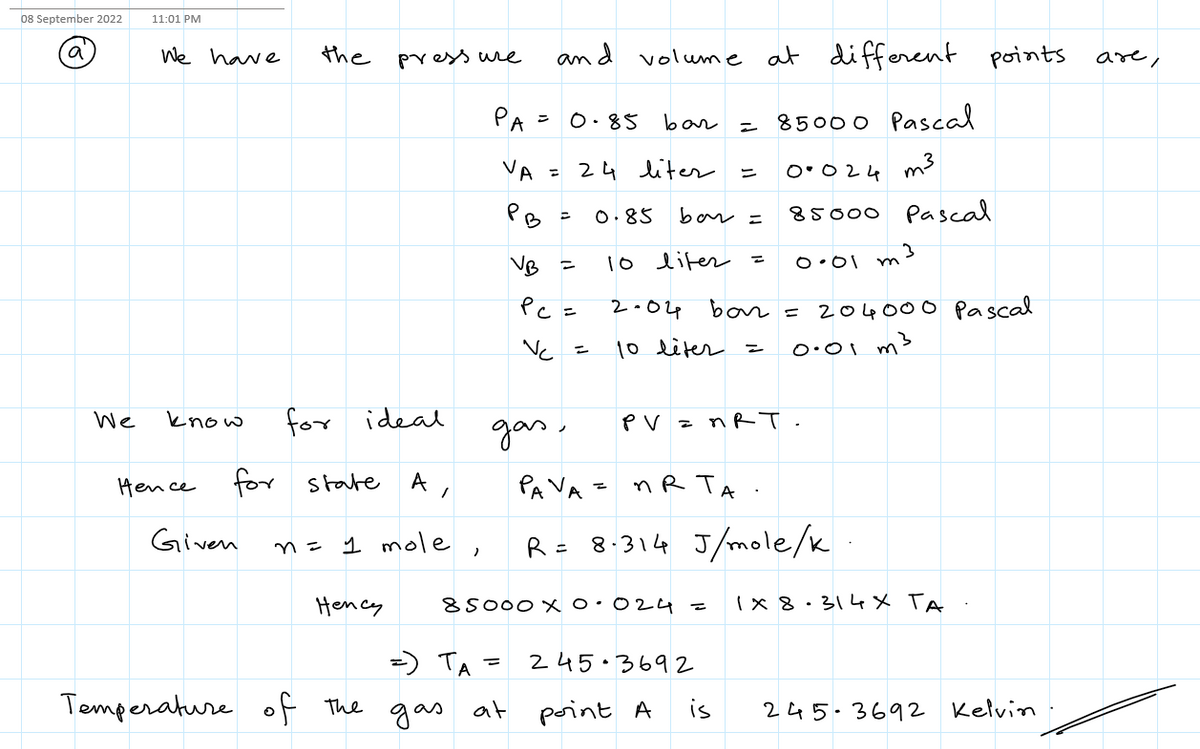 08 September 2022 11:01 PM
(a) We have the pressure and volume at different points are,
P_A = 0.85 bar = 85000 Pascal
V_A = 24 liter = 0.024 m³
P_B = 0.85 bar = 85000 Pascal
V_B = 10 liter = 0.01 m³
P_C = 2.04 bar = 204000 Pascal
V_C = 10 liter = 0.01 m³
We know for ideal gas, PV = nRT.
Hence for state A, P_A V_A = nRT_A.
Given n = 1 mole, R = 8.314 J/mole/k.
Hence 85000 × 0.024 = 1 × 8.314 × T_A.
⇒ T_A = 245.3692
Temperature of the gas at point A is 245.3692 Kelvin.